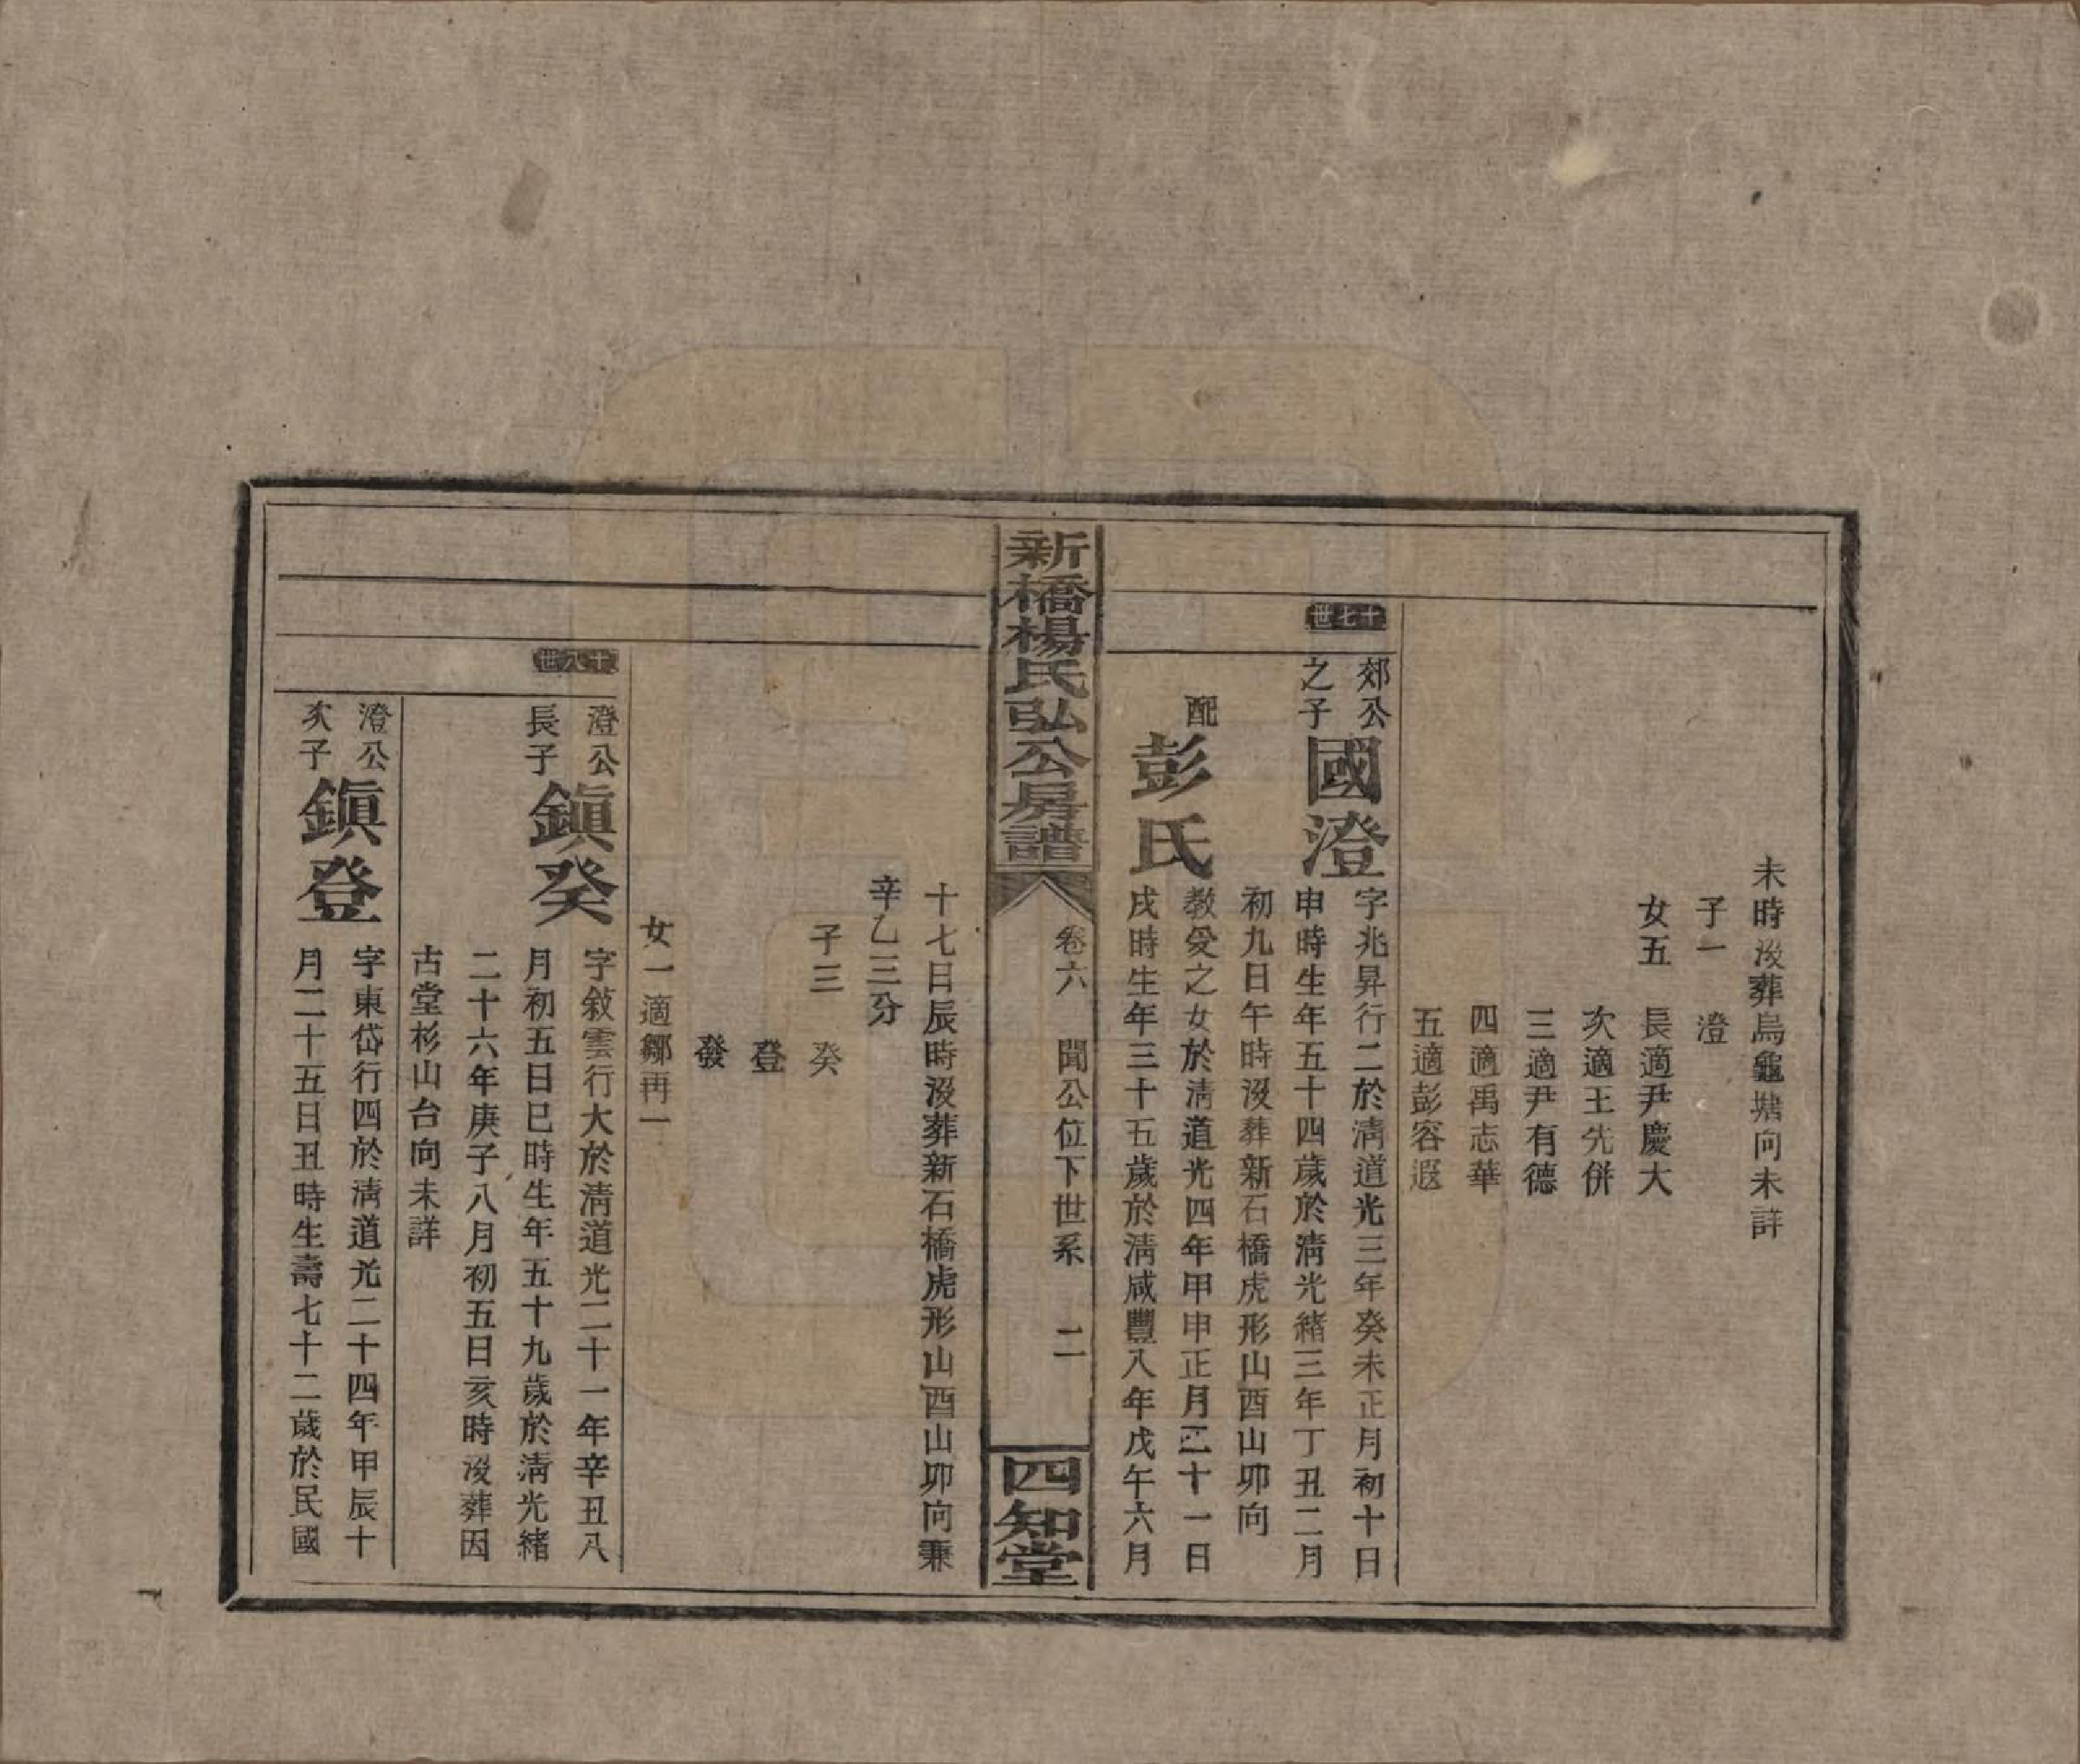 未時歿葬烏龜塘向未詳
子一　澄
女五　長適尹慶大
次適王先併
三適尹有德
四適禹志華
五適彭容遐
十七世
郊公
之子
國澄
字兆昇行二於清道光三年癸未正月初十日
申時生年五十四歲於清光緒三年丁丑二月
初九日午時沒葬新石橋虎形山酉山卯向
配
彭氏
教受之女於清道光四年甲申正月二十一日
戌時生年三十五歲於清咸豐八年戊午六月
新橋楊氏弘公房譜
卷六　閏公位下世系　二
四知堂
十七日辰時沒葬新石橋虎形山酉山卯向兼
辛乙三分
子三　癸
登
發
女一適鄒再一
十八世
澄公
長子
鎮癸
字敘雲行大於清道光二十一年辛丑八
月初五日巳時生年五十九歲於清光緒
二十六年庚子八月初五日亥時沒葬因
古堂杉山台向未詳
澄公
次子
鎮登
字東岱行四於清道光二十四年甲辰十
月二十五日丑時生壽七十二歲於民國